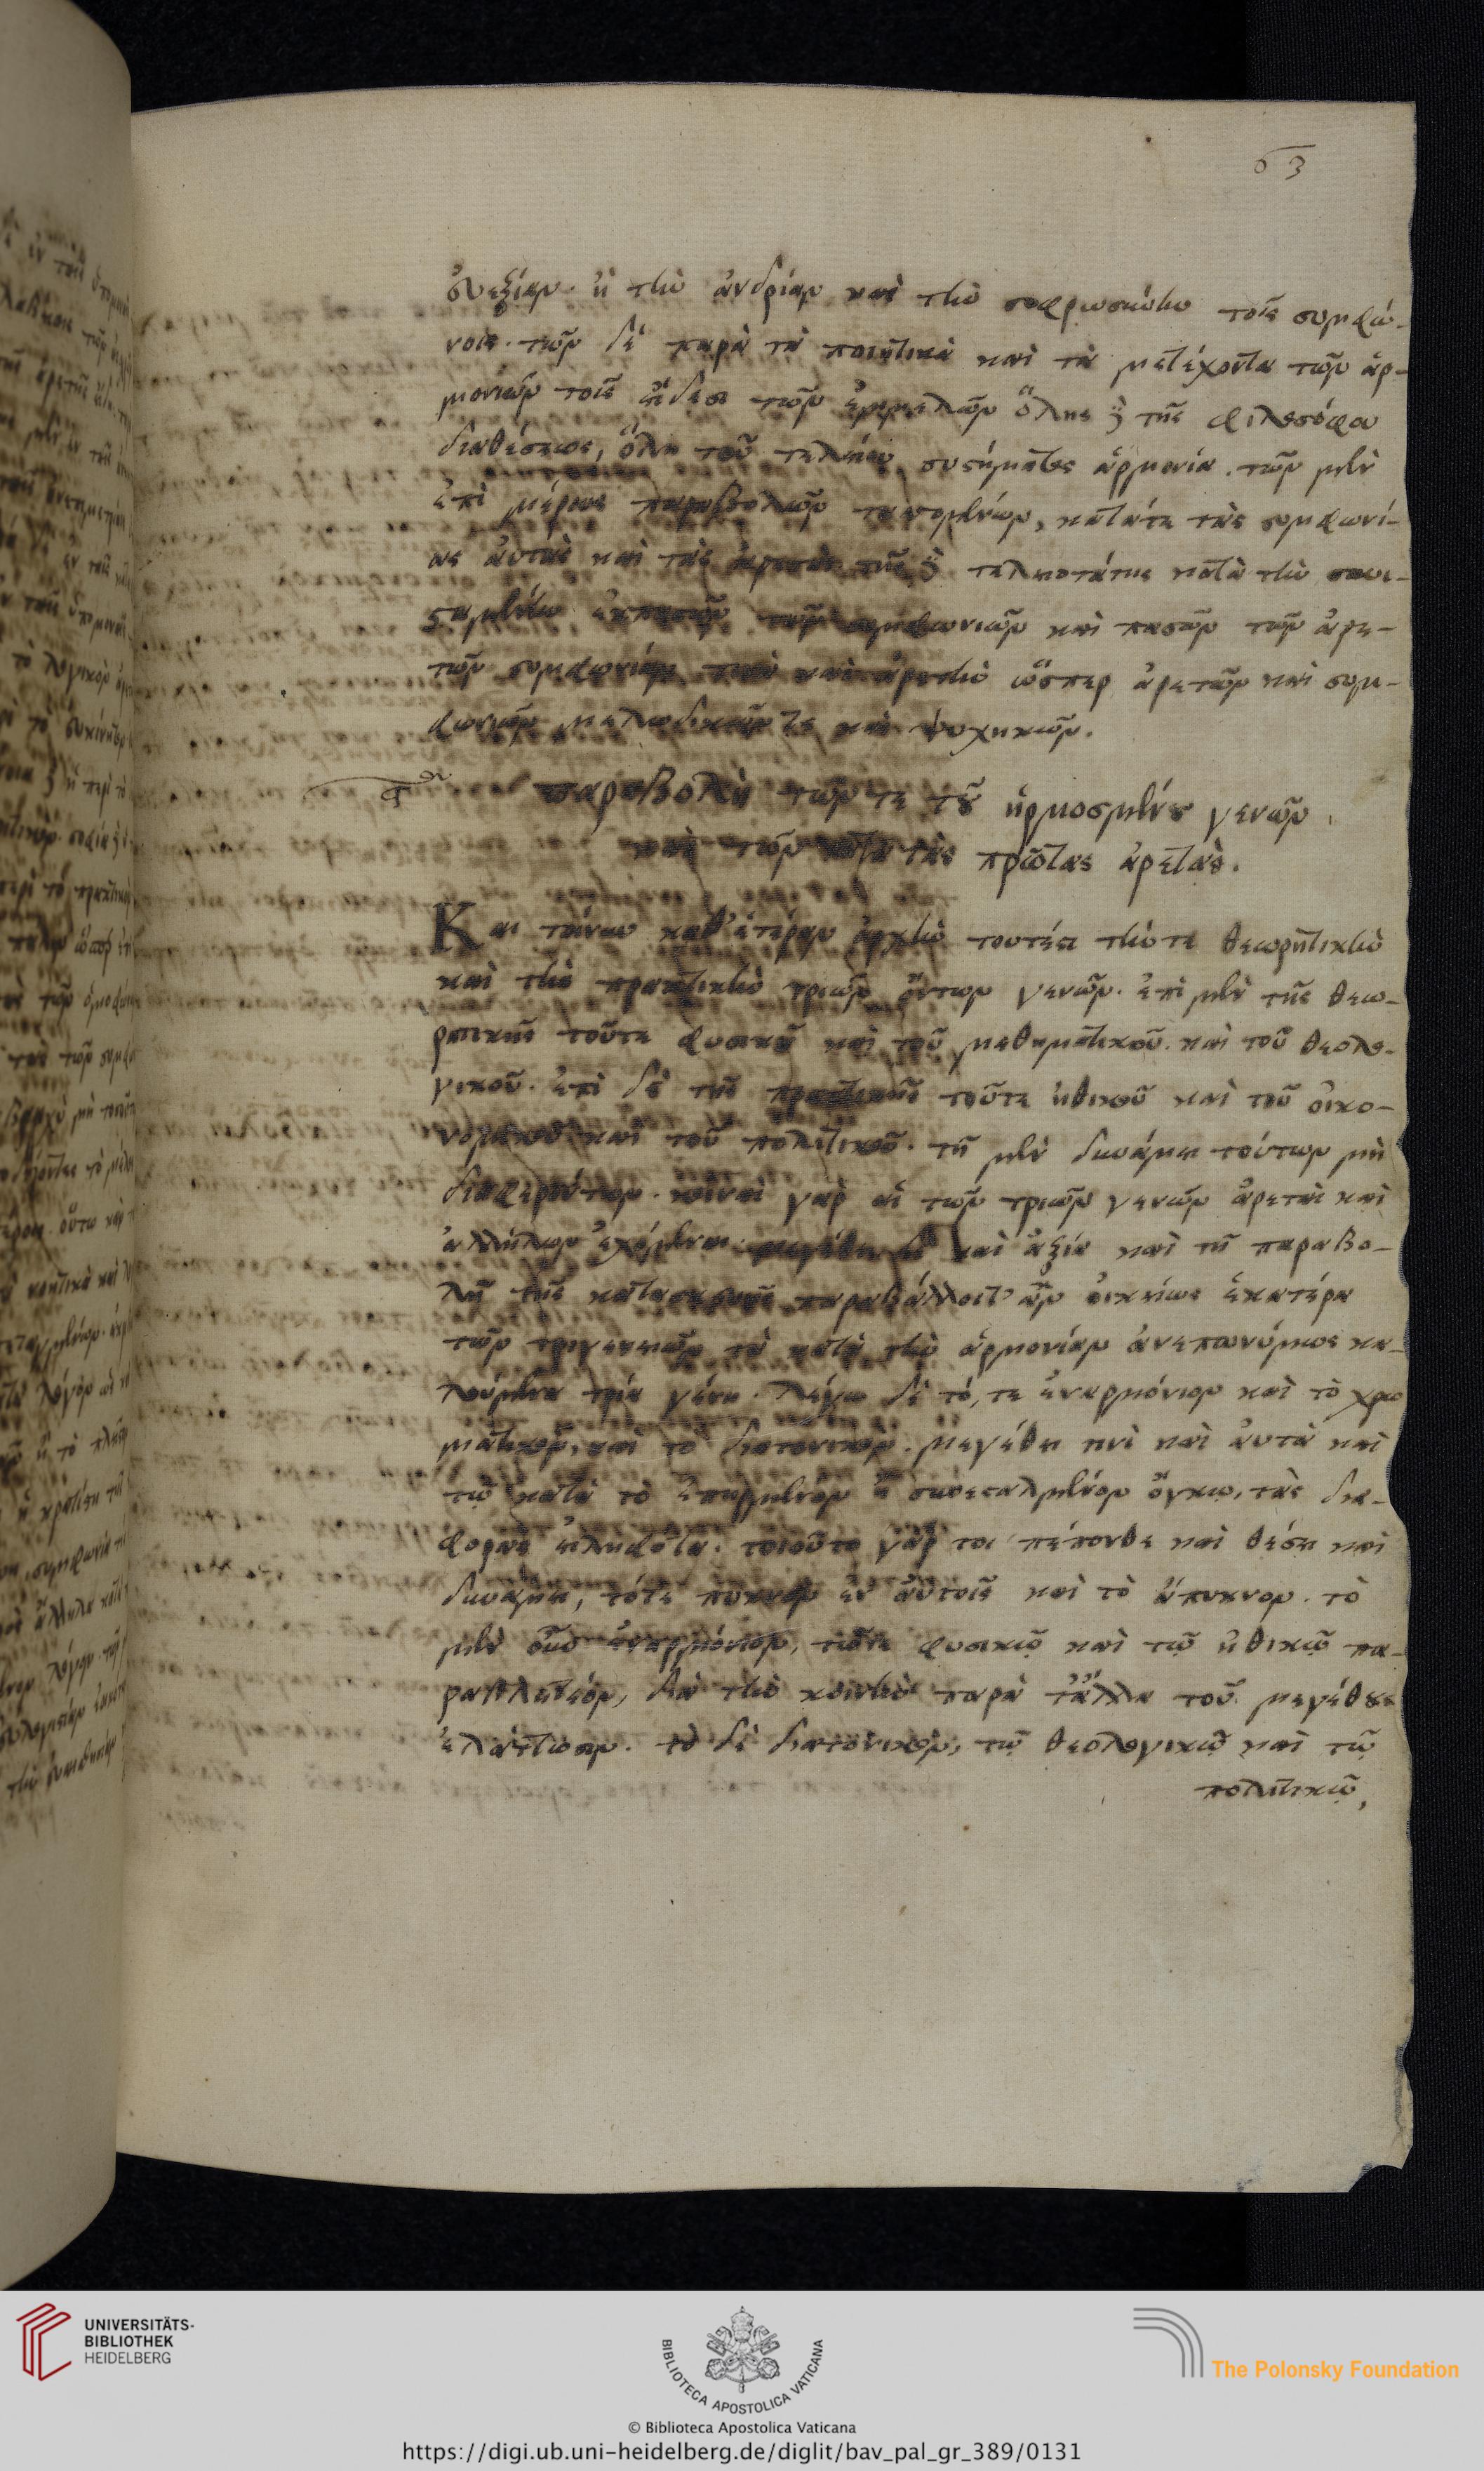 63
εὐεξίαν. ἢ τὴν ἀνδρίαν καὶ τὴν σοφρωσύνην τοῖς συμφώ-
νοις. τῶν δὲ παρὰ τὰ ποιητικὰ καὶ τὰ μετέχοντα τῶν ἁρ-
μονιῶν τοῖς εἴδεσι τῶν ἐμμελῶν ὅλης δὲ τῆς φιλοσόφου
διαθέσεως, ὅλη τοῦ τελείου συστήματος ἁρμονία. τῶν μὲν
ἐπὶ μέρους παραβολῶν ταττομένων, κατάτε τὰς συμφωνί-
ας αὐτὰς καὶ τὰς ἀρετὰς τῆς δὲ τελειοτάτης κατὰ τὴν συνι-
σταμένην ἐκπασῶν τῶν συμφωνιῶν καὶ πασῶν τῶν ἀρε-
τῶν συμφωνίαν τινὰ καὶ ἀρετὴν ὥσπερ ἀρετῶν καὶ συμ-
φωνιῶν μελωδικῶν τε καὶ ψυχηκῶν.
παραβολὴ τῶν τε τοῦ ἡρμοσμένου γενῶν
καὶ τῶν κατὰ τὰς πρώτας ἀρετὰς.
Και τοίνυν καθ' ἑτέραν ἀρχὴν τουτέστι τήντε θεωρητικὴν
καὶ τὴν πρακτικὴν τριῶν ὄντων γενῶν. ἐπὶ μὲν τῆς θεω-
ρητικῆς τοῦτε φυσικοῦ καὶ τοῦ μαθηματικοῦ. καὶ τοῦ θεολο-
γικοῦ. ἐπὶ δὲ τῆς πρακτικῆς τοῦτε ἠθικοῦ καὶ τοῦ οἰκο-
νομικοῦ καὶ τοῦ πολιτικοῦ. τῇ μὲν δυνάμει τούτων μὴ
διαφερόντων. κοιναὶ γὰρ αἱ τῶν τριῶν γενῶν ἀρεταὶ καὶ
ἀλλήλων ἐχόμεναι. μεγέθει δὲ καὶ ἀξία καὶ τῇ παραβο-
λῇ τῆς κατασκευῆς παραβάλλοιτ' ἂν οἰκείως ἑκατέρα
τῶν τριγενειῶν τὰ κατὰ τὴν ἁρμονίαν ἀνεπωνύμως κα-
λούμενα τρία γένη. λέγω δὲ τό, τε ἐναρμόνιον καὶ τὸ χρω
ματικὸν, καὶ τὸ διατονικὸν. μεγέθει τινὶ καὶ αὐτὰ καὶ
τῷ κατὰ τὸ ἐπῃρμένον ἢ συνεσταλμένον ὄγκῳ, τὰς δια-
φορὰς εἰληφότα. τοιοῦτο γάρ τοι πέπονθε καὶ θέσει καὶ
δυνάμει, τότε πυκνὸν ἐν αὐτοῖς καὶ τὸ ἄπυκνον. τὸ
μὲν οὖν ἐναρμόνιον, τῷτε φυσικῷ καὶ τῷ ἠθικῷ πα-
ραθλητέον, διὰ τὴν κοινὴν παρὰ τἆλλα τοῦ μεγέθους
ἐλάττωσιν. τὸ δὲ διατονικὸν, τῷ θεολογικῷ καὶ τῷ
πολιτικῷ,
UNIVERSITÄTS-
BIBLIOTHEK
HEIDELBERG
BIBLIOTECA APOSTOLICA VATICANA
© Biblioteca Apostolica Vaticana
The Polonsky Foundation
https://digi.ub.uni-heidelberg.de/diglit/bav_pal_gr_389/0131